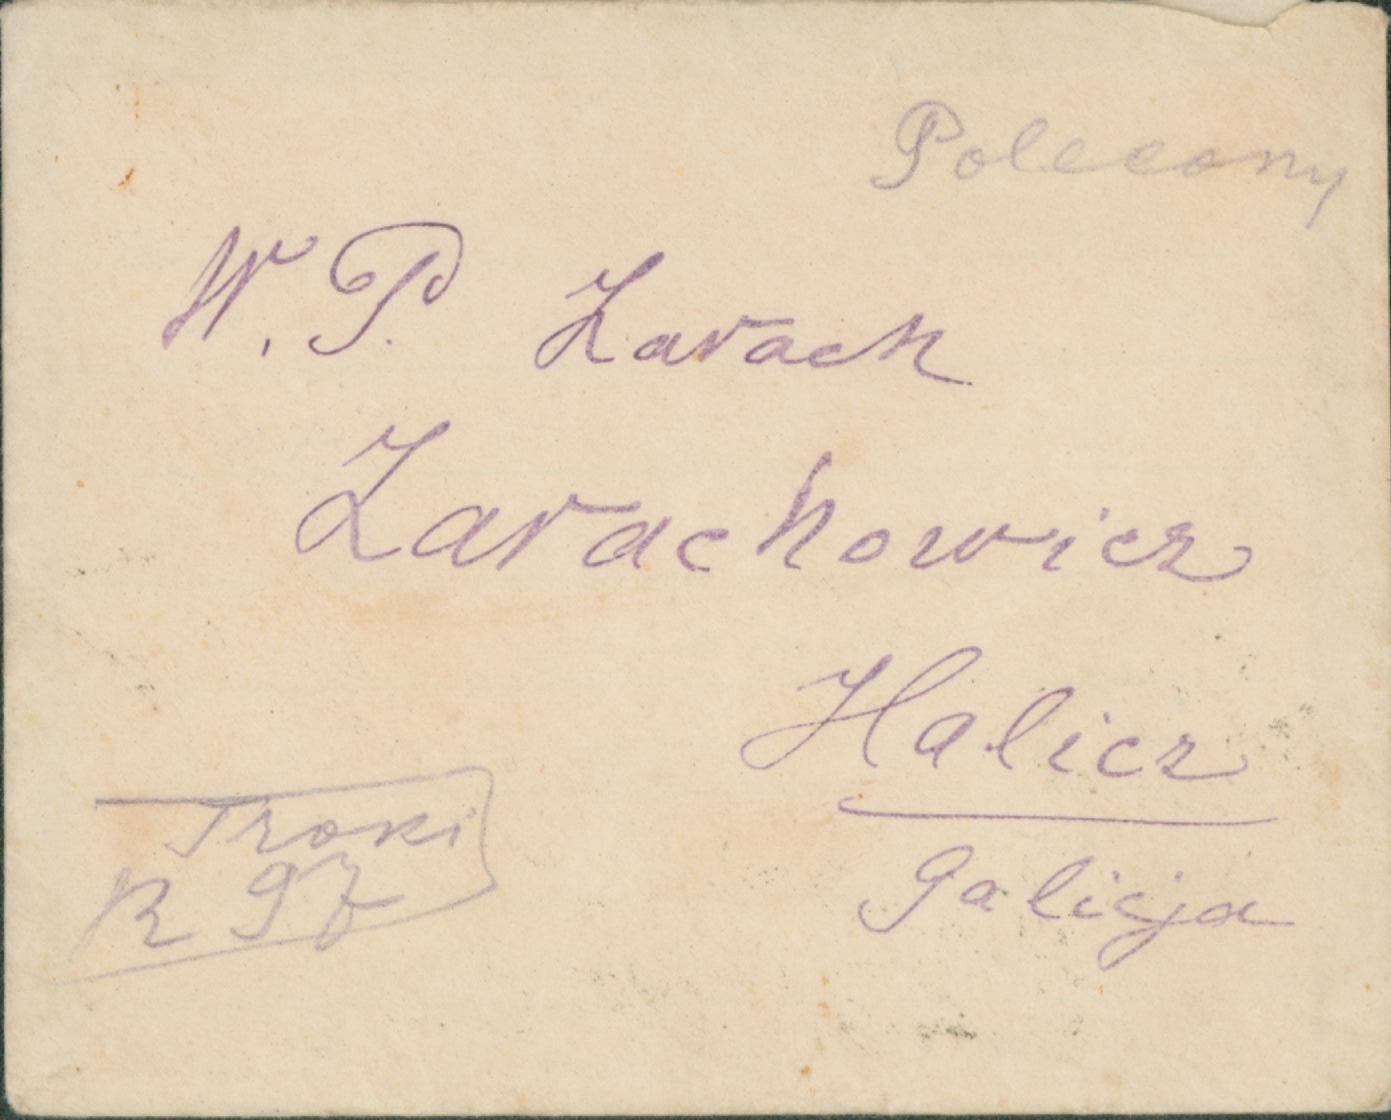 Polecony
W. P. Zarach
Zarachowicz
Halicz
Galicja
Troki
R 97